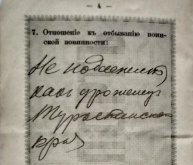 — 4 —
7. Отношеніе къ отбыванію воин-
ской повинности:
Не подлежитъ
какъ уроженец
Туркестанскаго
края